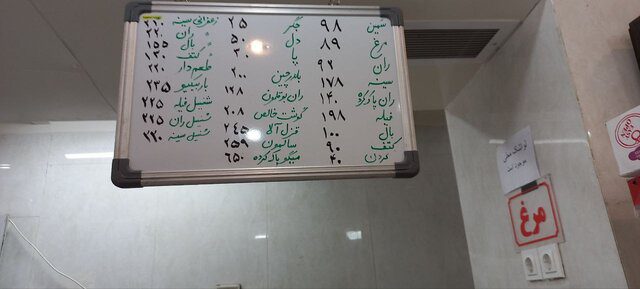 سین ۹۸
مرغ ۸۹
ران ۹۲
سینه ۱۷۸
ران پاک کرده ۱۴۰
فیله ۱۹۸
بال ۱۰۰
کتف ۹۰
گردن ۴۰
جگر ۲۵
دل ۵۰
پا ۲۰
بلدرچین ۲۰۰
ران بوقلمون ۱۲۸
گوشت خالص ۲۰۸
قزل آلا ۲۴۵
سالمون ۲۵۹
میگو پاک کرده ۶۵۰
زعفرانی سینه ۲۱۰
" ران ۲۲۰
" بال ۱۵۵
" کتف ۱۳۰
طعم دار ۲۲۰
باربیکیو ۲۳۵
شنیسل فیله ۲۲۵
شنیسل ران ۲۲۵
شنیسل سینه ۲۲۰
موجود است
مرغ